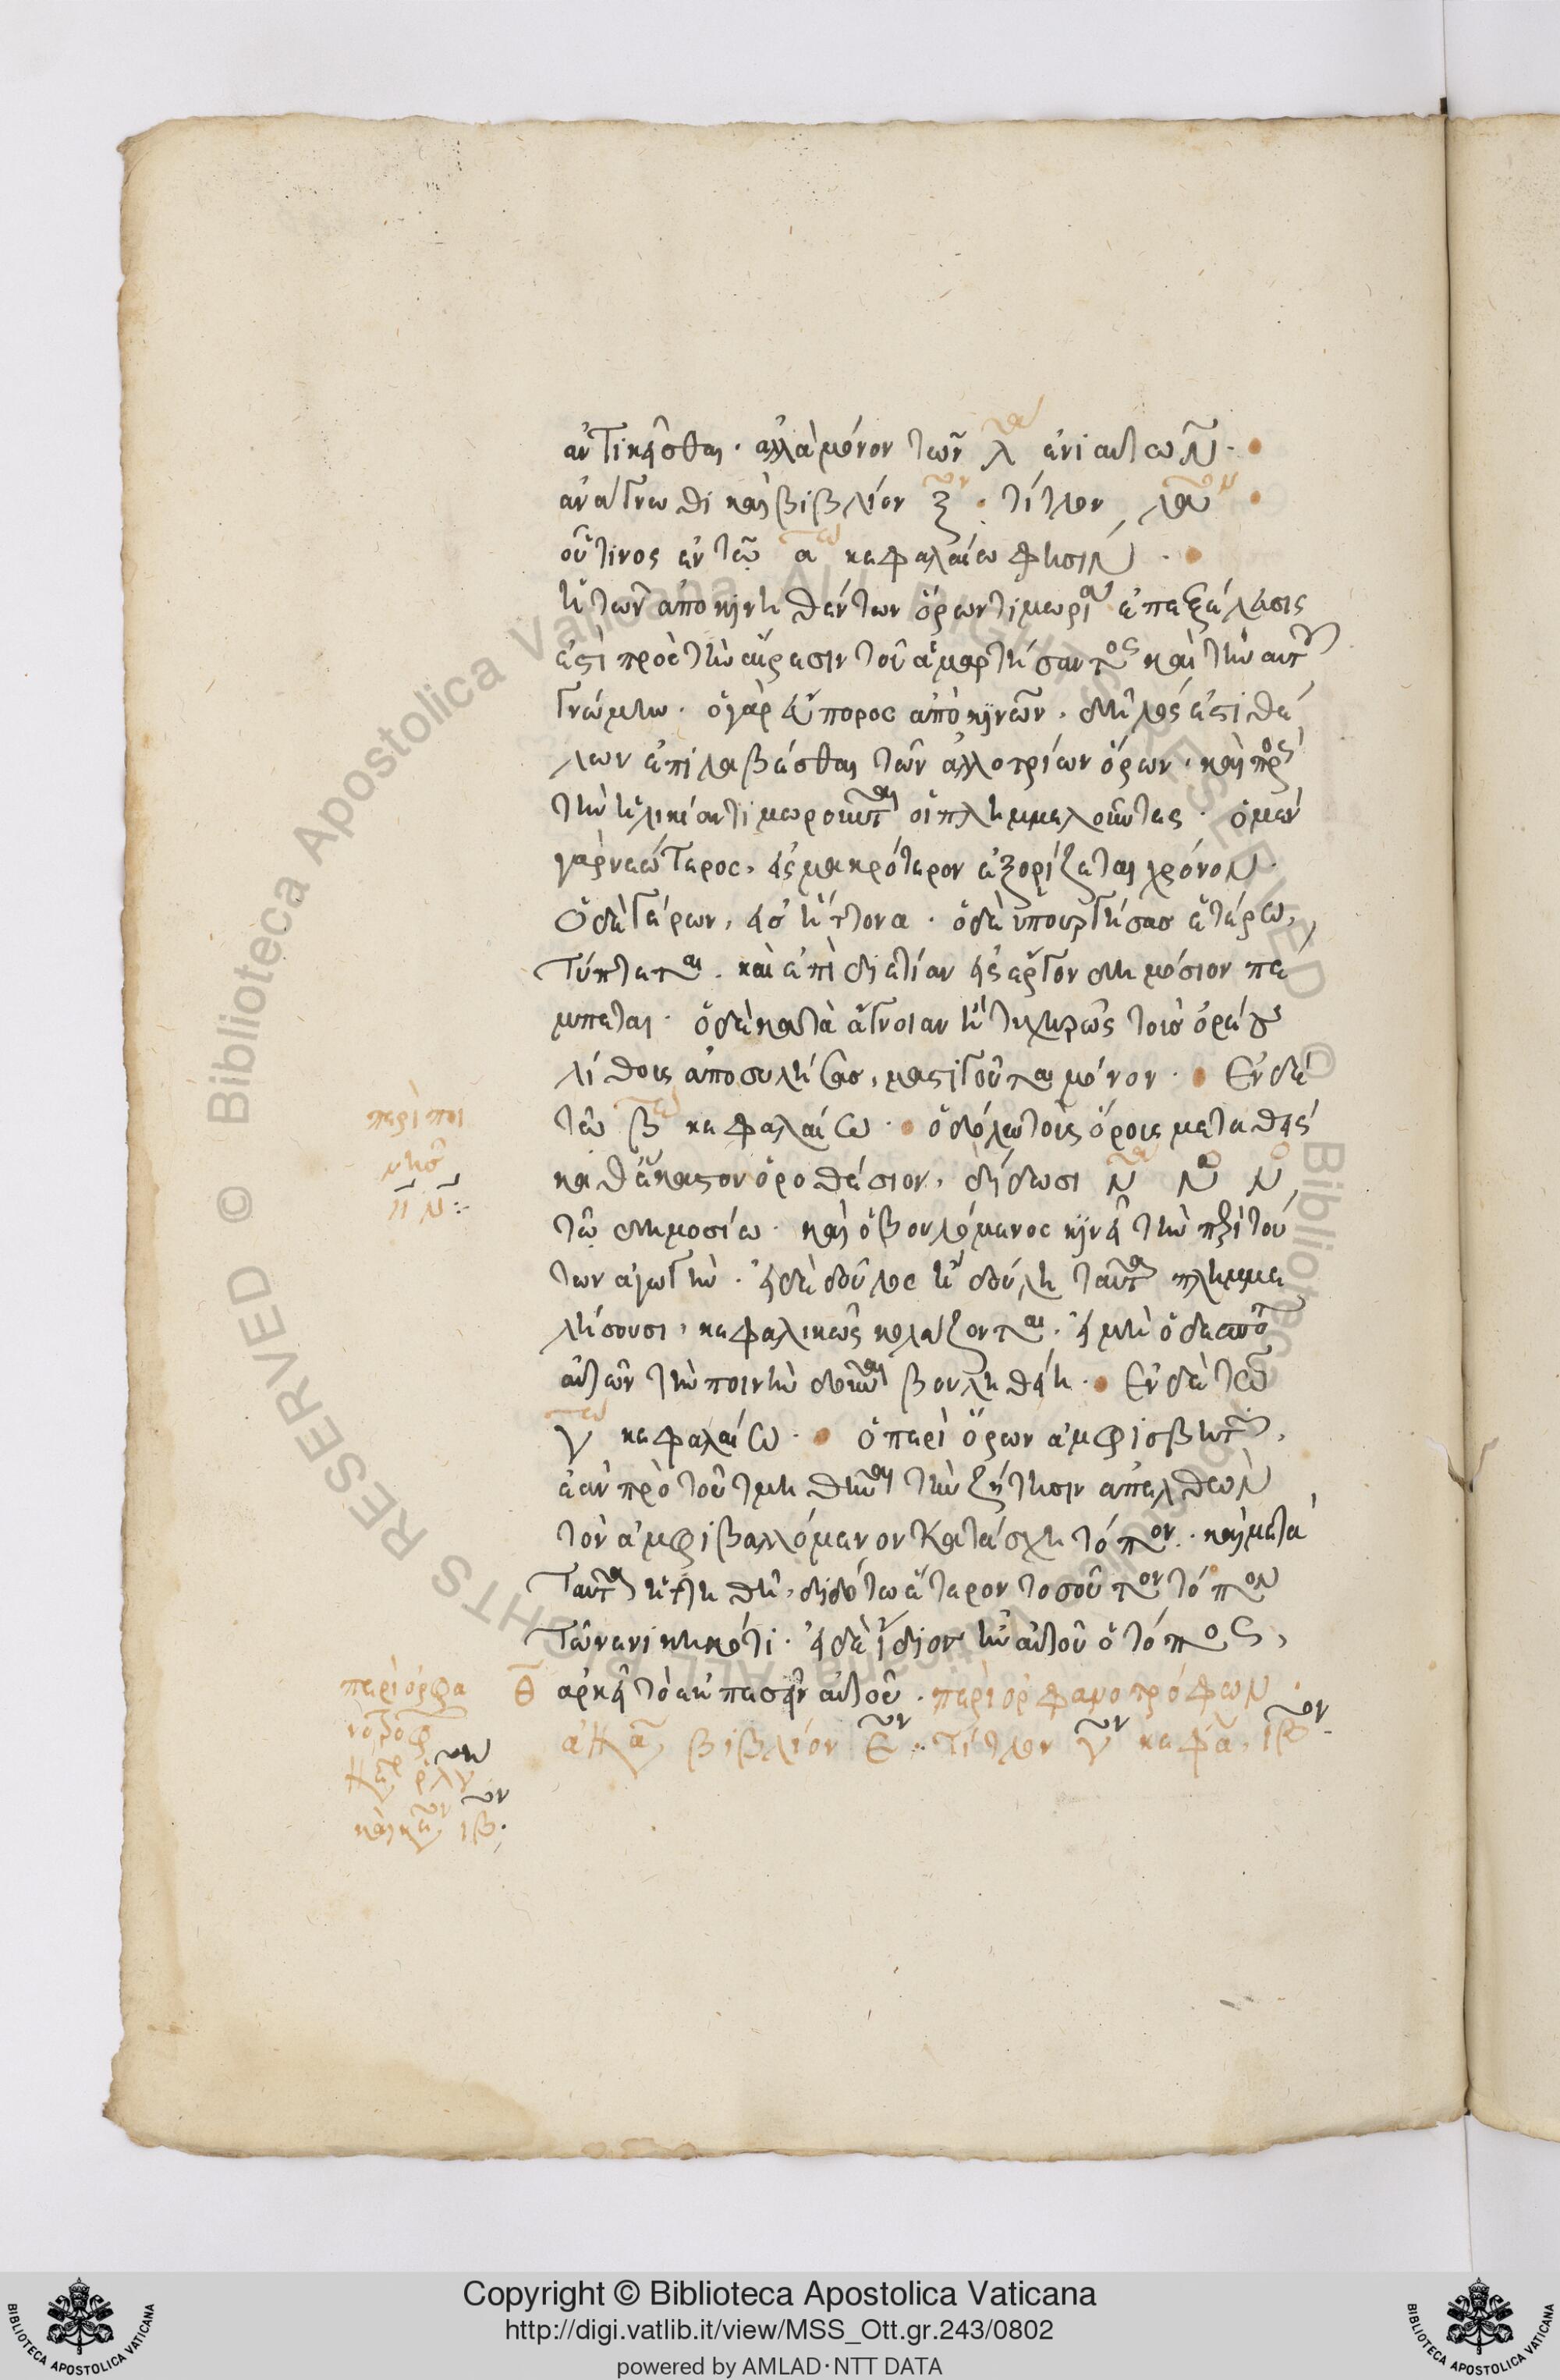 ἀντικεῖσθαι· ἀλλὰ μόνον τῶν λ ἐνιαυτῶν·
ἀνάγνωθι καὶ βιβλίον ξον· τίτλον
οὗτινος ἐν τῶ αω κεφαλαίω φησίν·
ἡ τῶν ἀποκινηθέντων ὅρων τιμωρία ἐπεξέλευσις
ἐστὶ πρὸς τὴν εὕρεσιν τοῦ ἁμαρτήσαντος καὶ τὴν αὐτοῦ
γνώμην· ὁ γὰρ εὔπορος ἀποκινῶν, δῆλός ἐστι θέ
λων ἐπιλαβέσθαι τῶν ἀλλοτρίων ὅρων· καὶ πρὸς
τὴν ἡλικίαν τιμωροῦνται οἱ πλημμελοῦντες· ὁ μὲν
γὰρ νεώτερος, εἰς μακρότερον ἐξορίζεται χρόνον·
ὁ δὲ γέρων, εἰς ἥττονα· ὁ δὲ ὑπουργήσας ἑτέρω,
τύπτεται· καὶ ἐπὶ διετίαν εἰς ἔργον δημόσιον πέ
μπεται· ὁ δὲ κατὰ ἄγνοιαν ἢ τυχηρῶς τοὺς
λίθους ἀποσυλήσας, μαστιγοῦται μόνον· Ἐν δὲ
τῶ βω κεφαλαίω· ὁ δόλω τοὺς ὅρους μεταθεὶς
καθ' ἕκαστον ὁροθέσιον, δίδωσι ν ν ν
τῶ δημοσίω· καὶ ὁ βουλόμενος κινεῖ τὴν περὶ τού
των ἀγωγήν· εἰ δὲ δοῦλος ἢ δούλη ταῦτα πλημμε
λήσουσι, κεφαλικῶς κολάζονται· εἰ μὴ ὁ δεσπότης
αὐτῶν τὴν ποινὴν δοῦναι βουληθείη· Ἐν δὲ τῶ
γω κεφαλαίω· ὁ περὶ ὅρων ἀμφισβητῶν,
ἐὰν πρὸ τοῦ τμηθῆναι τὴν ζήτησιν ἀπελθὼν
τὸν ἀμφιβαλλόμενον κατάσχη τόπον· καὶ μετὰ
ταῦτα ἡττηθῆ, διδότω ἕτερον τοσοῦτον τόπον
τῶ νενικηκότι· εἰ δὲ ἴδιον ἦν αὐτοῦ ὁ τόπος,
ἀρκεῖ τὸ ἐκπεσεῖν αὐτοῦ· περὶ ὀρφανοτρόφων·
βιβλίον· τίτλον γον κεφα, ιβον
περὶ ποι
νῆς
περὶ ὀρφα
νοτρόφ
ρλγ
καὶ ιβον
Copyright © Biblioteca Apostolica Vaticana
http://digi.vatlib.it/view/MSS_Ott.gr.243/0802
powered by AMLAD·NTT DATA